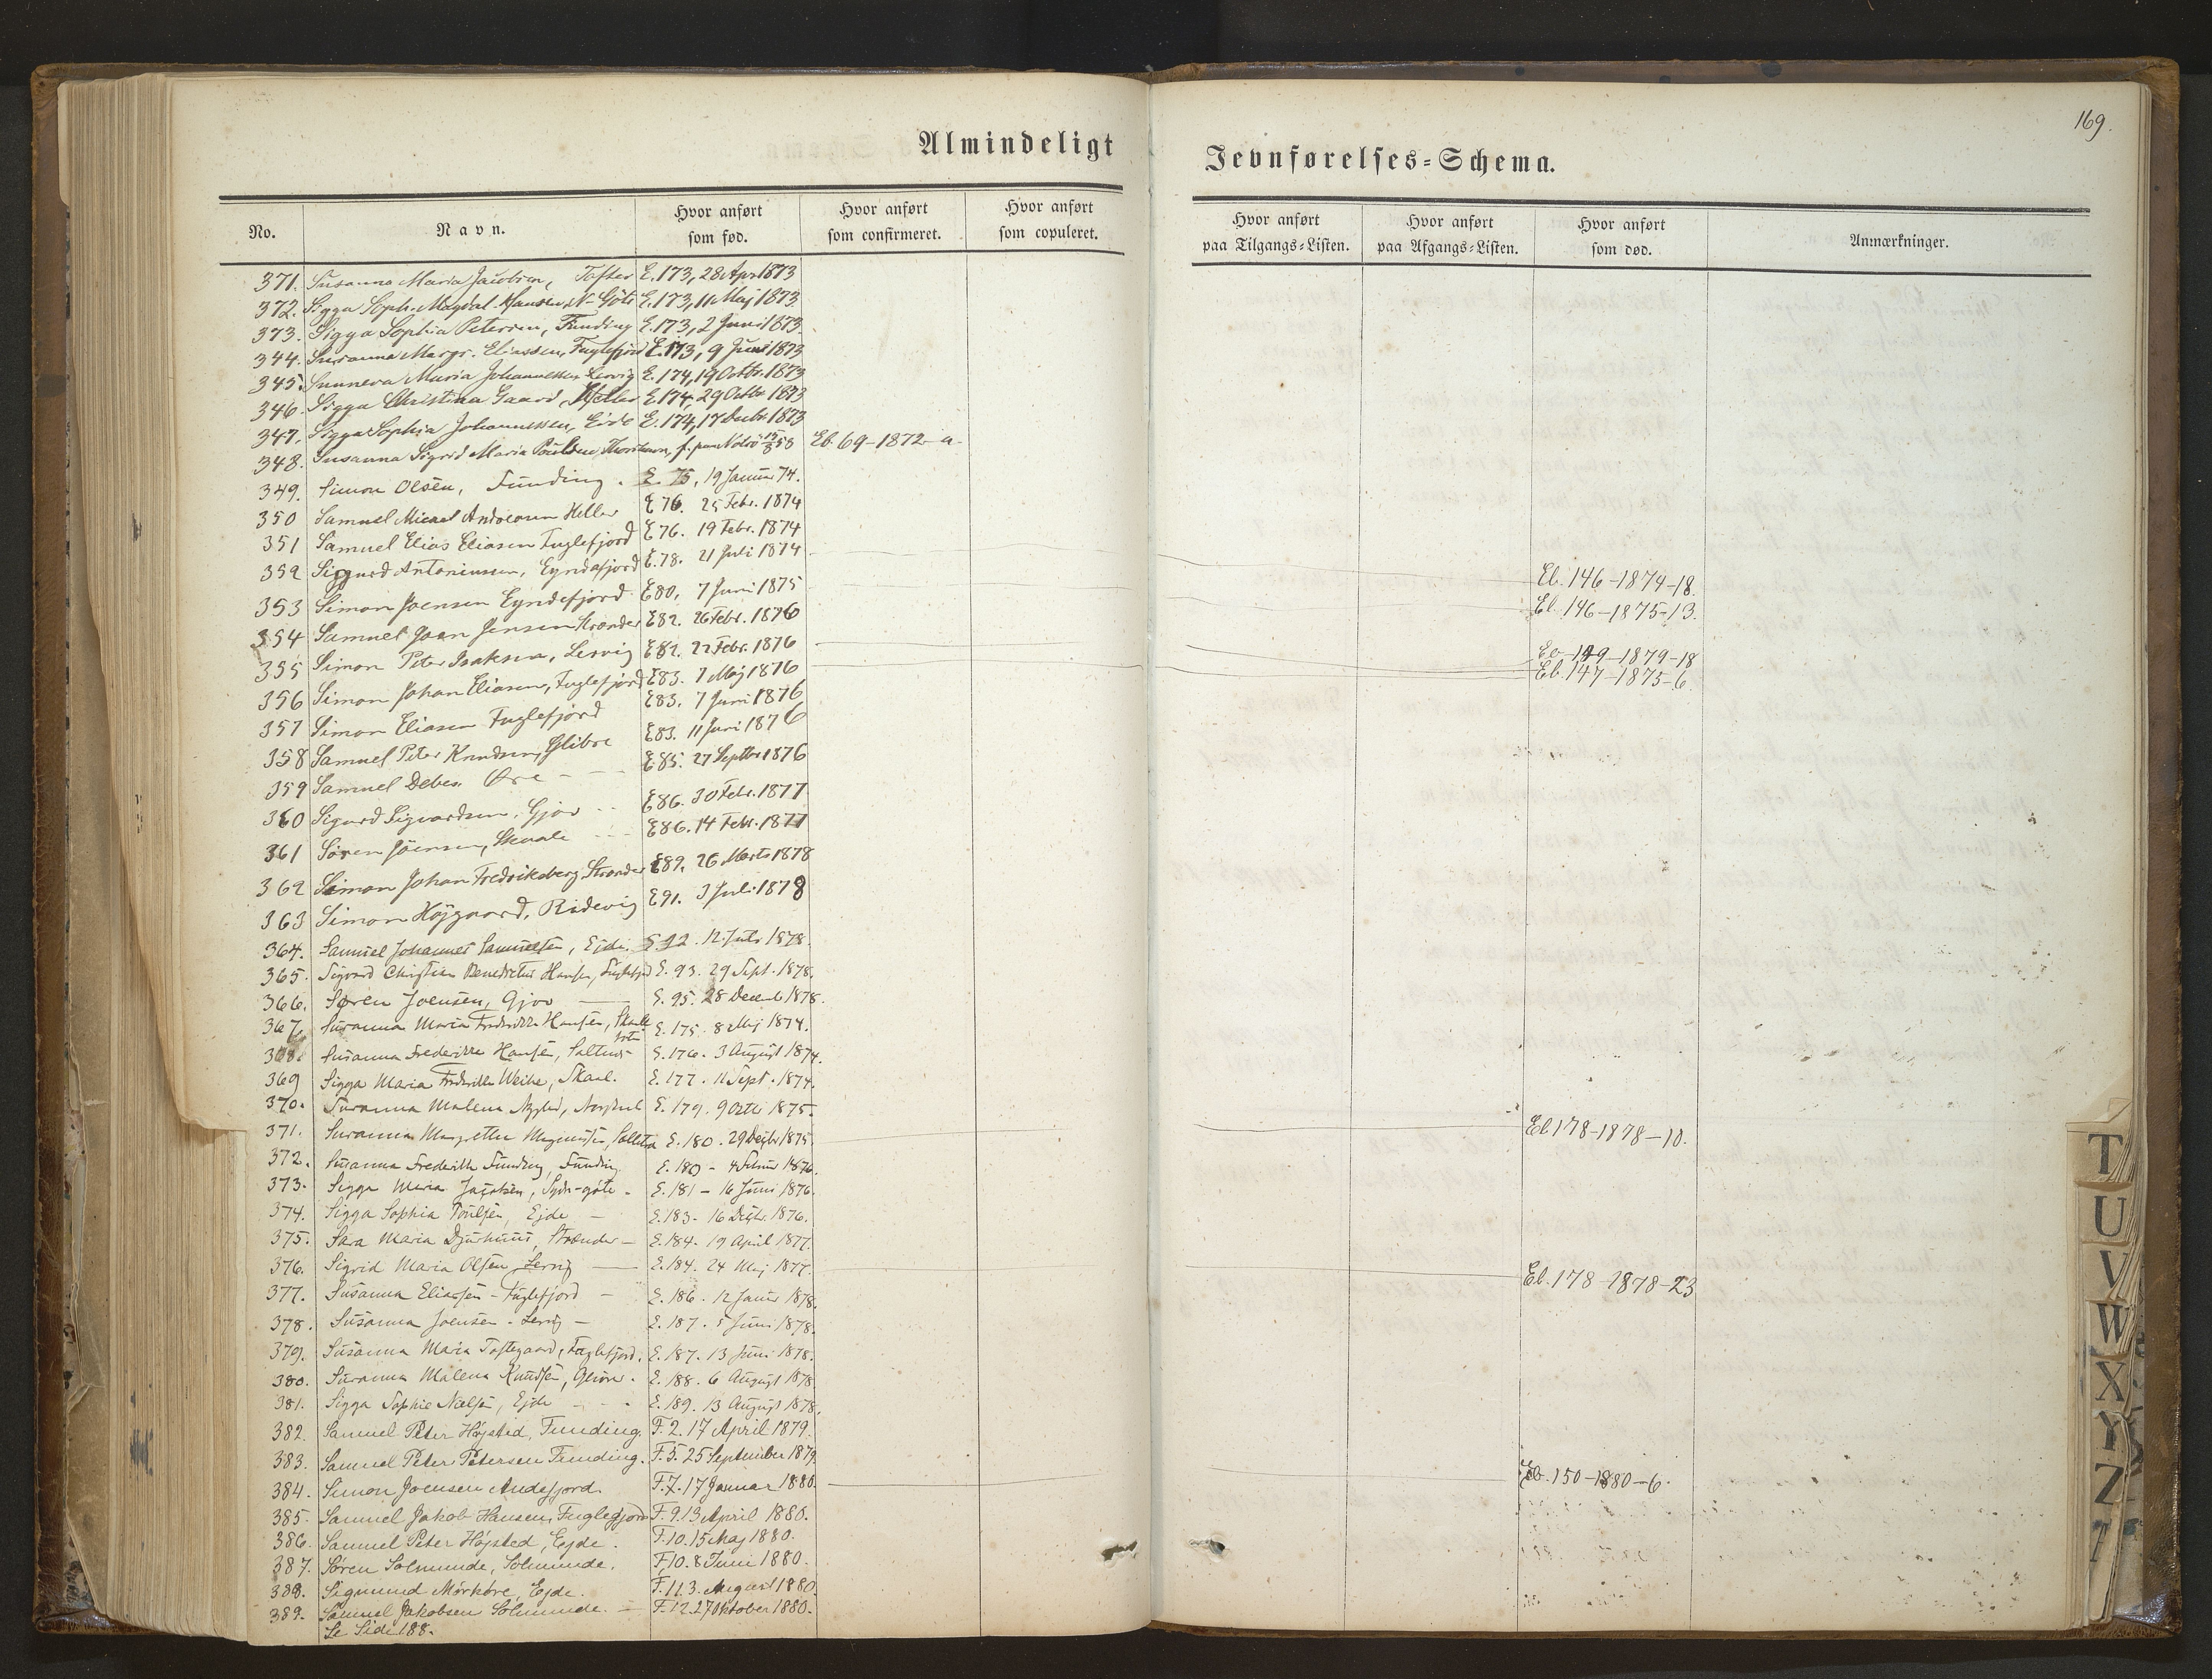 169.
Almindeligt Jevnførelses-Schema.
No. Navn. Hvor anført som fød. Hvor anført som confirmeret. Hvor anført som copuleret. Hvor anført paa Tilgangs-Listen. Hvor anført paa Afgangs-Listen. Hvor anført som død. Anmærkninger.
371. Susanna Maria Jacobsen, Tofter E. 173, 28 Apr 1873
372. Sigga Soph. Magdal. Hansen, N-Göte E. 173, 11 Maj 1873.
373. Sigga Sophia Petersen, Funding E. 173, 2 Juni 1873.
344. Susanna Margr. Eliassen, Fuglefjord E. 173, 9 Juni 1873
345. Sunneva Maria Johannessen Lervig E. 174, 19 Octbr. 1873
346. Sigga Christina Gaard, Heller E. 174, 29 Octbr 1873
347. Sigga Sophia Johannessen, Eide E. 174, 17 Decbr 1873
348. Susanna Sigrid Maria Poulsen, Thorshavn, f. paa Nolsö 15/8 58 Eb. 69-1872-a-
349. Simon Olsen, Funding. E. 75, 19 Januar 74.
350 Samuel Micael Andreasen Heller E 76. 25 Febr. 1874
351 Samuel Elias Eliasen Fuglefjord E 76. 19 Febr. 1874
352 Siggurd Antoniussen, Eyndefjord E. 78. 21 Juli 1874 Eb. 146-1874-18.
353 Simon Joensen Eyndefjord E 80. 7 Juni 1875 Eb. 146-1875-13.
354 Samuel Joan Jensen Strænder E 82. 26 Febr. 1876
355 Simon Peter Isaksen, Lervig E 82. 22 Febr. 1876 Eb-149-1879-18
356 Simon Johan Eliasen, Fuglefjord E 83. 7 Maj 1876 Eb. 147-1875-6.
357 Simon Eliasen Fuglefjord E 83. 7 Juni 1876
358 Samuel Peter Knudsen, Glibre E 83. 11 Juni 1876
359 Samuel Debes. Øre - - - E 85. 27 Septbr 1876
360 Sigurd Sigvardsen, Gjov - - E 86. 30 Febr. 1877
361 Sören Jóensen, Skaale - - - E 86. 14 Febr. 1877
362 Simon Johan Fredriksberg, Strænder E 89. 26 Marts 1878
363 Simon Höjgaard, Ridevig E 91. 3 Juli 1878
364. Samuel Johannes Samuelsen, Ejde. E. 92. 12 Juli 1878.
365. Sigvard Christian Benedictus Hansen, Fuglefjord E. 93. 29 Sept. 1878.
366. Søren Joensen, Gjov — E. 95. 28 Decemb 1878.
367. Susanna Maria Fredrikke Hansen, Skaalebotn E. 175. 8 Maj 1874.
368. Susanna Frederikke Hansen, Saltnæs E. 176. 3 August 1874.
369 Sigga Maria Fredrikke Weihe, Skaal. E. 177. 11 Sept. 1874.
370. Susanna Malena E. 179. 9 Octbr 1875.
371. Susanna Margrethe Magnussen, E. 180. 29 Decbr 1875. Eb. 178-1878-10.
372. Susanna Frederikke Funding, Funding E. 180 - 4 Februar 1876.
373. Sigga Maria Jacobsen, Syder-göte - E. 181 - 16 Juni 1876.
374. Sigga Sophia Poulsen, Ejde - E. 183- 16 Decbr. 1876.
375. Sara Maria Djurhuus, Strænder - E. 184. 19 April 1877.
376. Sigrid Maria Olsen, Lervig — E. 184. 24 Maj 1877. Eb. 178-1878-23
377. Susanna Eliassen - Fuglefjord - E. 186. 12 Januar 1878.
378. Susanna Joensen - Lervig - E. 187. 5 Juni 1878.
379. Susanna Maria Toftegaard, Fuglefjord. E. 187. 13 Juni 1878.
380. Susanna Malena Knudsen, Glibre. E. 188. 6 August 1878
381. Sigga Sophie Nielsen, Ejde - - - E. 189. 13 August 1878.
382. Samuel Peter Højsted, Funding. F. 2. 17 April 1879.
383. Samuel Peter Petersen Funding. F. 5. 25 September 1879
384. Simon Joensen Andefjord. F. 7. 17 Januar 1880. Eb. 150-1880-6.
385. Samuel Jakob Hansen, Fuglefjord F. 9. 13 April 1880.
386. Samuel Peter Højsted, Ejde. F. 10. 15 Maj 1880.
387. Søren Solmunde, Solmunde. F. 10. 8 Juni 1880.
388. Sigmund Mörköre, Ejde. F. 11. 3. August 1880.
389. Samuel Jakobsen Solmunde. - F. 12. 27 Oktober 1880.
Se Side 188.
T
U
V
W
X
Y
Z